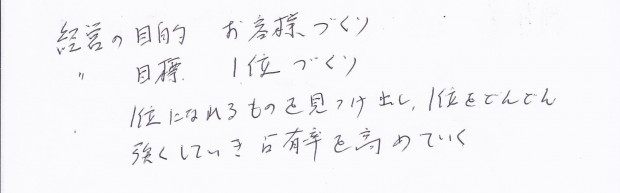 経営の目的 お客様づくり
〃 目標 1位づくり
1位になれるものを見つけ出し、1位をどんどん
強くしていき占有率を高めていく